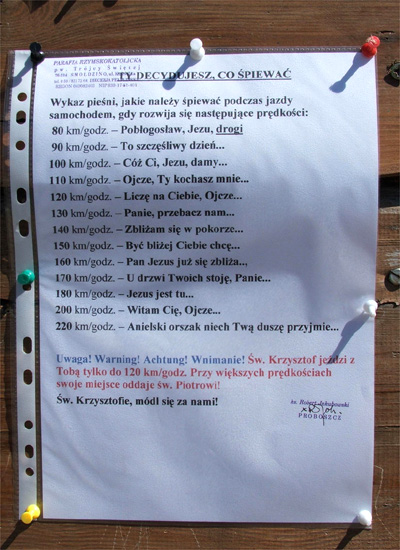 PARAFIA RZYMSKOKATOLICKA
pw. Trójcy Świętej
TY DECYDUJESZ, CO ŚPIEWAĆ
Wykaz pieśni, jakie należy śpiewać podczas jazdy
samochodem, gdy rozwija się następujące prędkości:
80 km/godz. – Pobłogosław, Jezu, drogi
90 km/godz. – To szczęśliwy dzień...
100 km/godz. – Cóż Ci, Jezu, damy...
110 km/godz. – Ojcze, Ty kochasz mnie...
120 km/godz. – Liczę na Ciebie, Ojcze...
130 km/godz. – Panie, przebacz nam...
140 km/godz. – Zbliżam się w pokorze...
150 km/godz. – Być bliżej Ciebie chcę...
160 km/godz. – Pan Jezus już się zbliża..,
170 km/godz. – U drzwi Twoich stoję, Panie...
180 km/godz. – Jezus jest tu...
200 km/godz. – Witam Cię, Ojcze...
220 km/godz. – Anielski orszak niech Twą duszę przyjmie...
Uwaga! Warning! Achtung! Wnimanie! Św. Krzysztof jeździ z
Tobą tylko do 120 km/godz. Przy większych prędkościach
swoje miejsce oddaje św. Piotrowi!
Św. Krzysztofie, módl się za nami!
ks. Robert Jakubowski
PROBOSZCZ